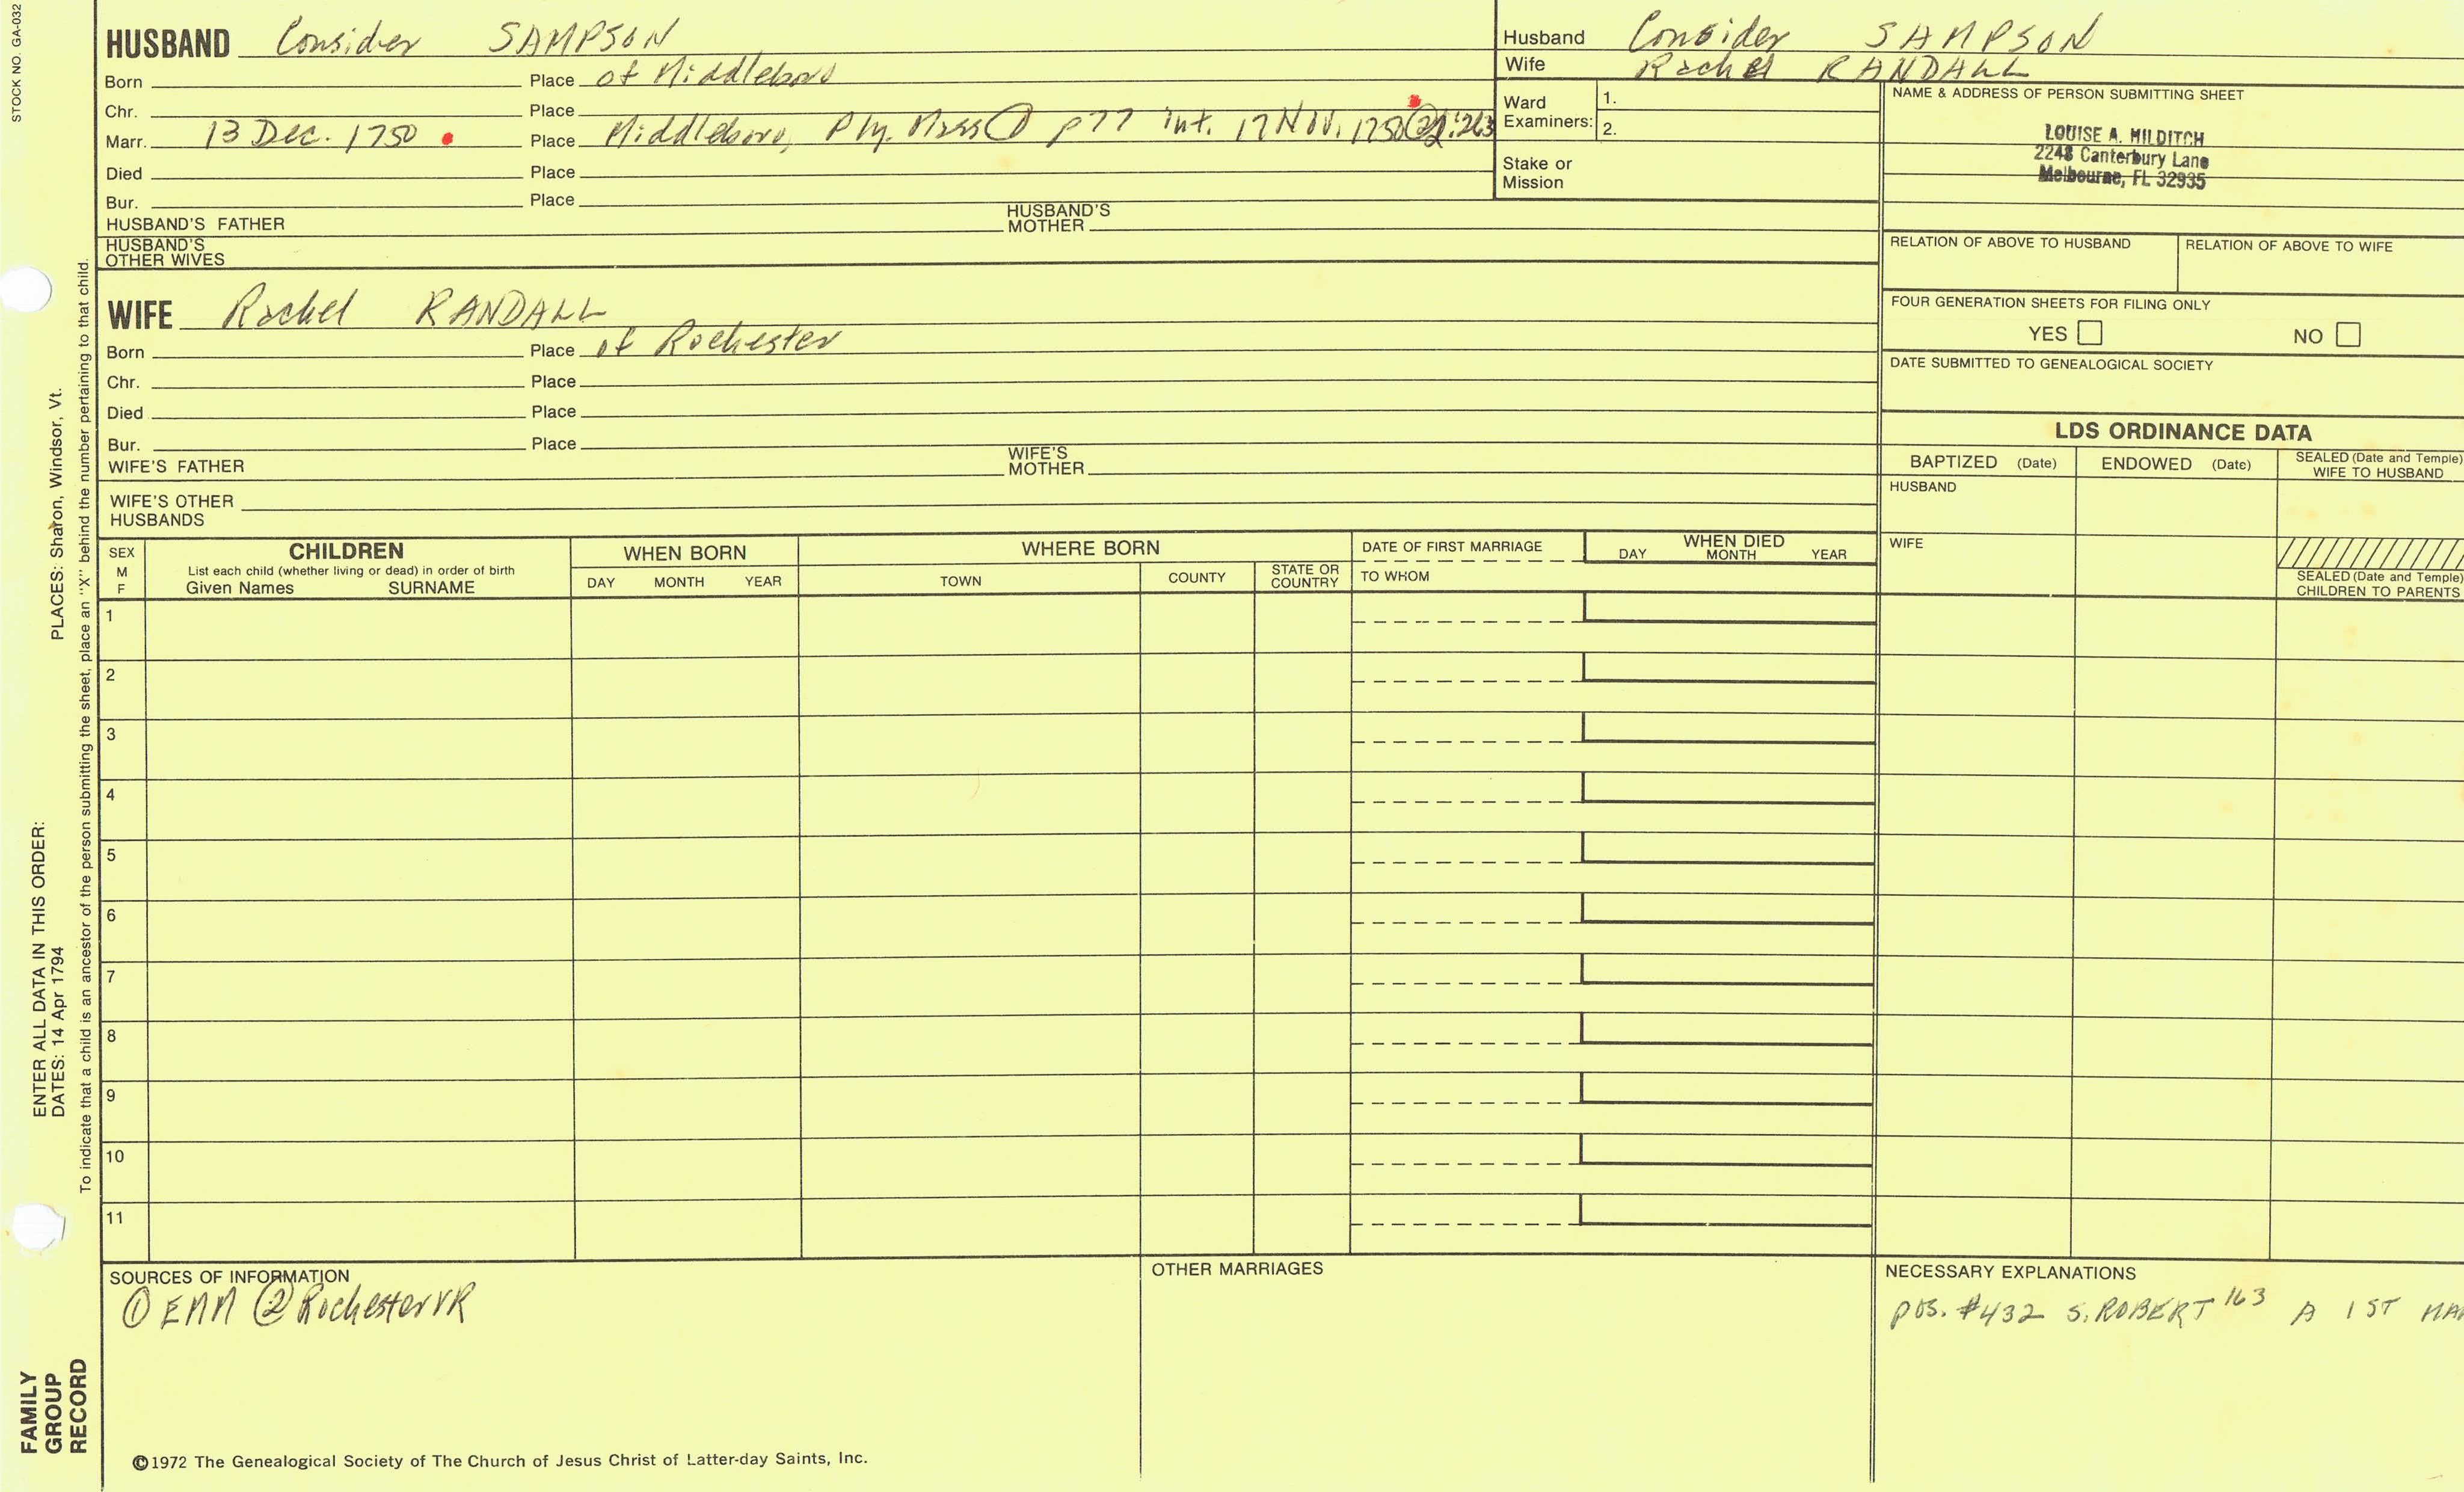 STOCK NO. GA-032
HUSBAND Consider SAMPSON
Born Place of Middleboro
Chr. Place
Marr. 13 Dec. 1750 Place Middleboro, Ply. Mass ① p77 int. 17 Nov. 1750 ② 2:263
Died Place
Bur. Place
HUSBAND'S FATHER HUSBAND'S MOTHER
HUSBAND'S OTHER WIVES
Husband Consider SAMPSON
Wife Rachel RANDALL
Ward Examiners: 1.
2.
Stake or Mission
NAME & ADDRESS OF PERSON SUBMITTING SHEET
LOUISE A. MILDITCH
2248 Canterbury Lane
Melbourne, FL 32935
RELATION OF ABOVE TO HUSBAND RELATION OF ABOVE TO WIFE
FOUR GENERATION SHEETS FOR FILING ONLY
YES NO
DATE SUBMITTED TO GENEALOGICAL SOCIETY
WIFE Rachel RANDALL
Born Place of Rochester
Chr. Place
Died Place
Bur. Place
WIFE'S FATHER WIFE'S MOTHER
WIFE'S OTHER HUSBANDS
LDS ORDINANCE DATA
BAPTIZED (Date) ENDOWED (Date) SEALED (Date and Temple) WIFE TO HUSBAND
HUSBAND
WIFE
SEALED (Date and Temple) CHILDREN TO PARENTS
SEX M F
CHILDREN
List each child (whether living or dead) in order of birth
Given Names SURNAME
WHEN BORN
DAY MONTH YEAR
WHERE BORN
TOWN COUNTY STATE OR COUNTRY
DATE OF FIRST MARRIAGE
TO WHOM
WHEN DIED
DAY MONTH YEAR
1
2
3
4
5
6
7
8
9
10
11
SOURCES OF INFORMATION
① EMM ② Rochester VR
OTHER MARRIAGES
NECESSARY EXPLANATIONS
pos. #432 S. ROBERT 163 A 1ST
©1972 The Genealogical Society of The Church of Jesus Christ of Latter-day Saints, Inc.
FAMILY GROUP RECORD
ENTER ALL DATA IN THIS ORDER:
DATES: 14 Apr 1794 PLACES: Sharon, Windsor, Vt.
To indicate that a child is an ancestor of the person submitting the sheet, place an "X" behind the number pertaining to that child.